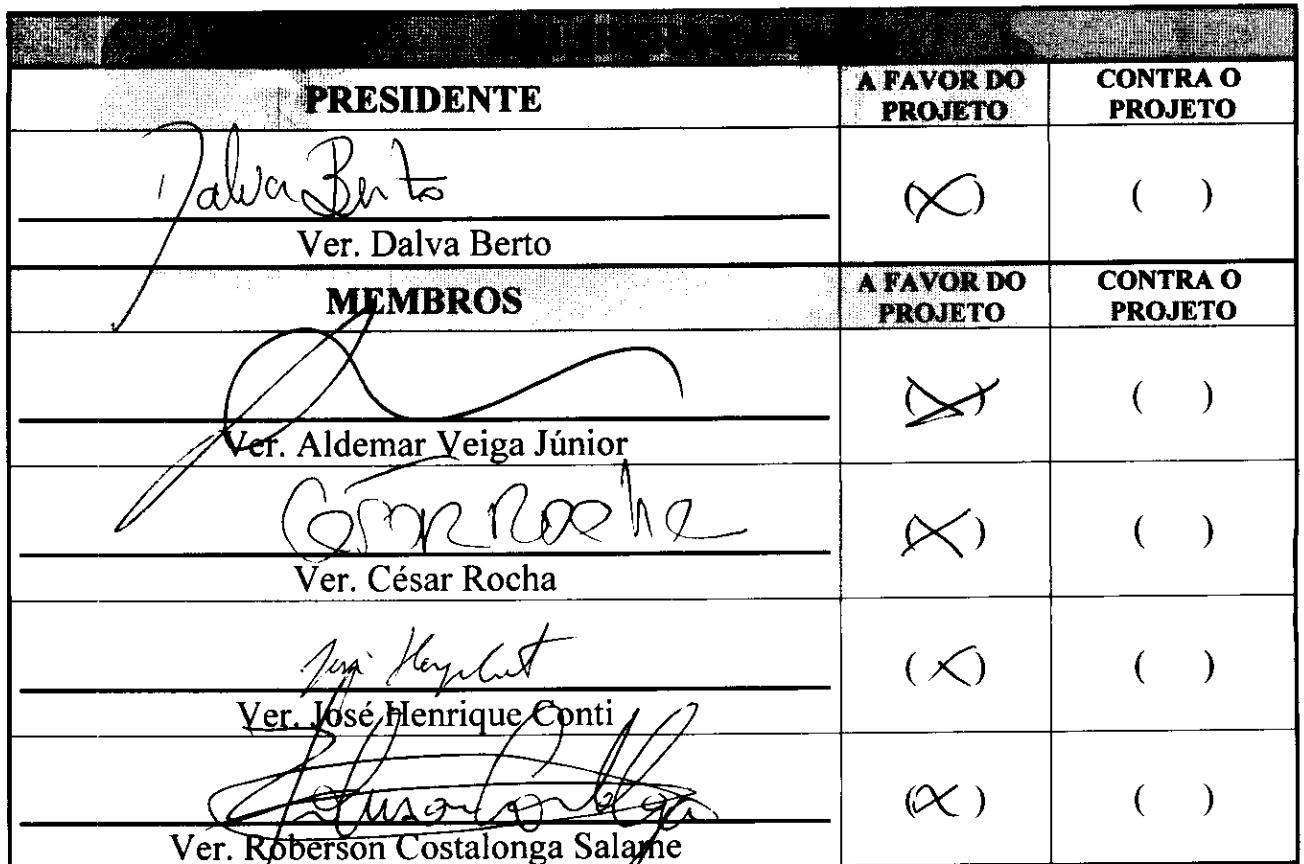 PRESIDENTE A FAVOR DO PROJETO CONTRA O PROJETO
Dalva Berto (X) ( )
Ver. Dalva Berto
MEMBROS A FAVOR DO PROJETO CONTRA O PROJETO
(X) ( )
Ver. Aldemar Veiga Júnior
César Rocha (X) ( )
Ver. César Rocha
(X) ( )
Ver. José Henrique Conti
(X) ( )
Ver. Roberson Costalonga Salame